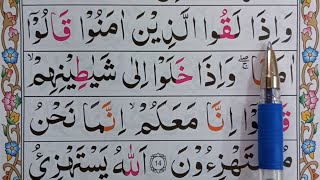 وَاِذَا لَقُوا الَّذِيْنَ اٰمَنُوْا قَالُوْٓا
اٰمَنَّا ۖۚ وَاِذَا خَلَوْا اِلٰى شَيٰطِيْنِهِمْ ۙ
قَالُوْٓا اِنَّا مَعَكُمْ ۙ اِنَّمَا نَحْنُ
مُسْتَهْزِءُوْنَ ﴿14﴾ اَللّٰهُ يَسْتَهْزِئُ